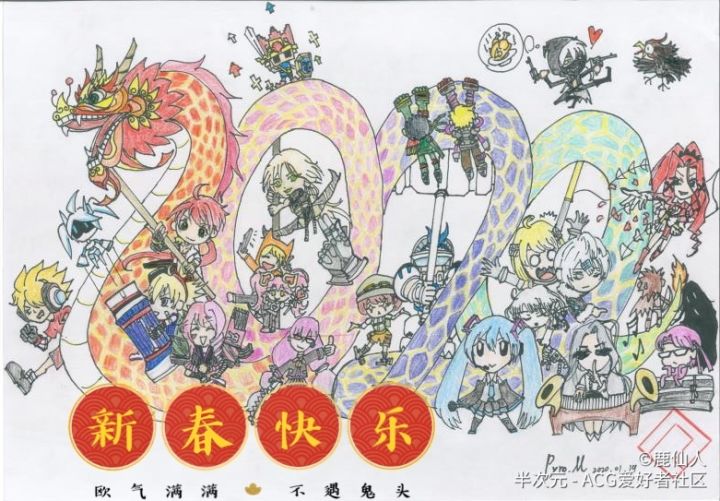 2020
新春快乐
欧气满满 不遇鬼头
Pyro.M 2020.01.19
©鹿仙人
半次元 - ACG爱好者社区